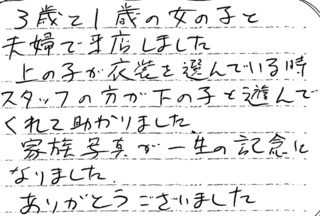 3歳と1歳の女の子と
夫婦で来店しました
上の子が衣装を選んでいる時
スタッフの方が下の子と遊んで
くれて助かりました
家族写真が一生の記念に
なりました.
ありがとうございました